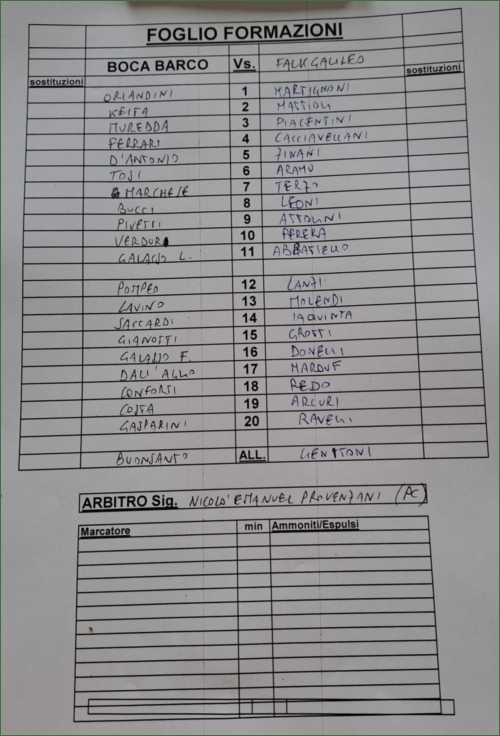 FOGLIO FORMAZIONI
BOCA BARCO Vs. FALKGALILEO
sostituzioni sostituzioni
ORLANDINI 1 MARTIGNONI
KEITA 2 MATTIOLI
MUREDDA 3 PIACENTINI
FERRARI 4 CACCIAVELLANI
D'ANTONIO 5 ZINANI
TOSI 6 ARAMU
MARCHESE 7 TERZO
BUCCI 8 LEONI
PIVETTI 9 ATTOLINI
VERDURA 10 PERERA
GALASSO L. 11 ABBATIELLO
POMPEO 12 LANZI
LAVINO 13 MOLENDI
SACCARDI 14 IAQUINTA
GIANOTTI 15 GROTTI
GALASSO F. 16 DONELLI
DALL'AGLIO 17 MAROUF
CONFORTI 18 REDO
COSTA 19 ARCURI
GASPARINI 20 RAVELLI
BUONSANTO ALL.
ARBITRO Sig. NICOLO' EMANUEL PROVENZANI
Marcatore min Ammoniti/Espulsi